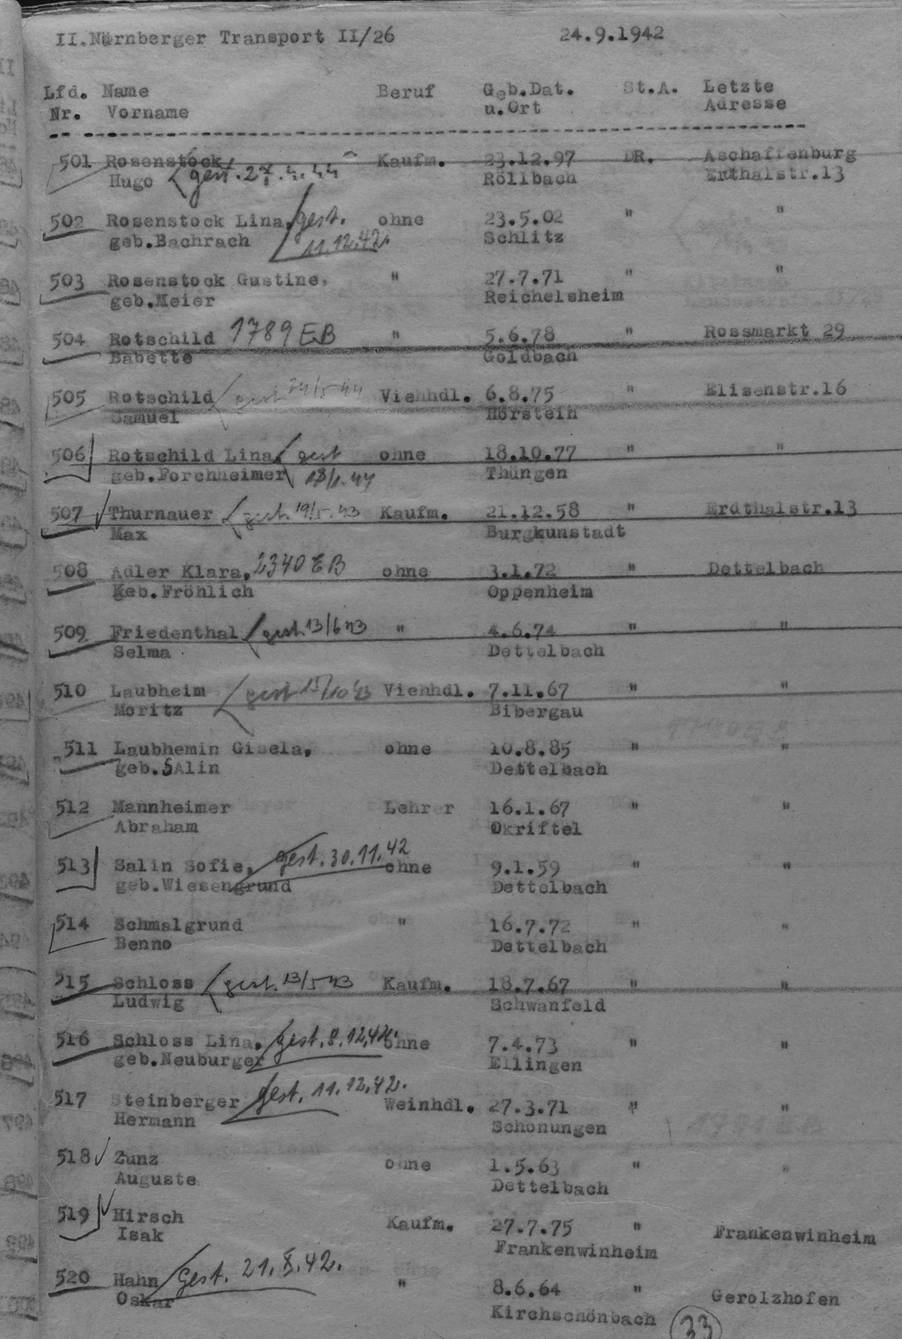 II.Nürnberger Transport II/26 24.9.1942
Lfd. Name Beruf Geb.Dat. St.A. Letzte
Nr. Vorname u.Ort Adresse
501 Rosenstock Kaufm. 23.12.97 DR. Aschaffenburg
Hugo gest. 27.4.44 Röllbach Erdthalstr.13
502 Rosenstock Lina, gest. ohne 23.5.02 " "
geb.Bachrach 11.12.42. Schlitz
503 Rosenstock Gustine, " 27.7.71 " "
geb.Meier Reichelsheim
504 Rotschild 1789 EB " 5.6.78 " Rossmarkt 29
Babette Goldbach
505 Rotschild gest. Viehhdl. 6.8.75 " Elisenstr.16
Samuel Hörstein
506 Rotschild Lina, gest ohne 18.10.77 " "
geb.Forchheimer 18/1.44 Thüngen
507 Thurnauer gest. 19/5.43 Kaufm. 21.12.58 " Erdthalstr.13
Max Burgkunstadt
508 Adler Klara, 2340 EB ohne 3.1.72 " Dettelbach
geb.Fröhlich Oppenheim
509 Friedenthal gest. 13/6 43 " 4.6.74 " "
Selma Dettelbach
510 Laubheim gest 15/10 43 Viehhdl. 7.11.67 " "
Moritz Bibergau
511 Laubhemin Gisela, ohne 10.8.85 " "
geb.SAlin Dettelbach
512 Mannheimer Lehrer 16.1.67 " "
Abraham Okriftel
513 Salin Sofie, gest. 30.11.42 ohne 9.1.59 " "
geb.Wiesengrund Dettelbach
514 Schmalgrund " 16.7.72 " "
Benno Dettelbach
515 Schloss gest. 13/5 43 Kaufm. 18.7.67 " "
Ludwig Schwanfeld
516 Schloss Lina, gest. 8.12.42. ohne 7.4.73 " "
geb.Neuburger Ellingen
517 Steinberger gest. 11.12.42. Weinhdl. 27.3.71 " "
Hermann Schonungen
518 Zunz ohne 1.5.63 " "
Auguste Dettelbach
519 Hirsch Kaufm. 27.7.75 " Frankenwinheim
Isak Frankenwinheim
520 Hahn gest. 21.X.42. " 8.6.64 " Gerolzhofen
Oskar Kirchschönbach
33